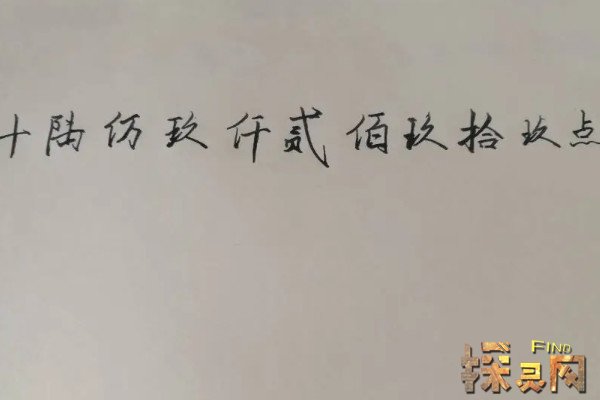 十陆仿玖仟贰佰玖拾玖点
FIND
探灵网